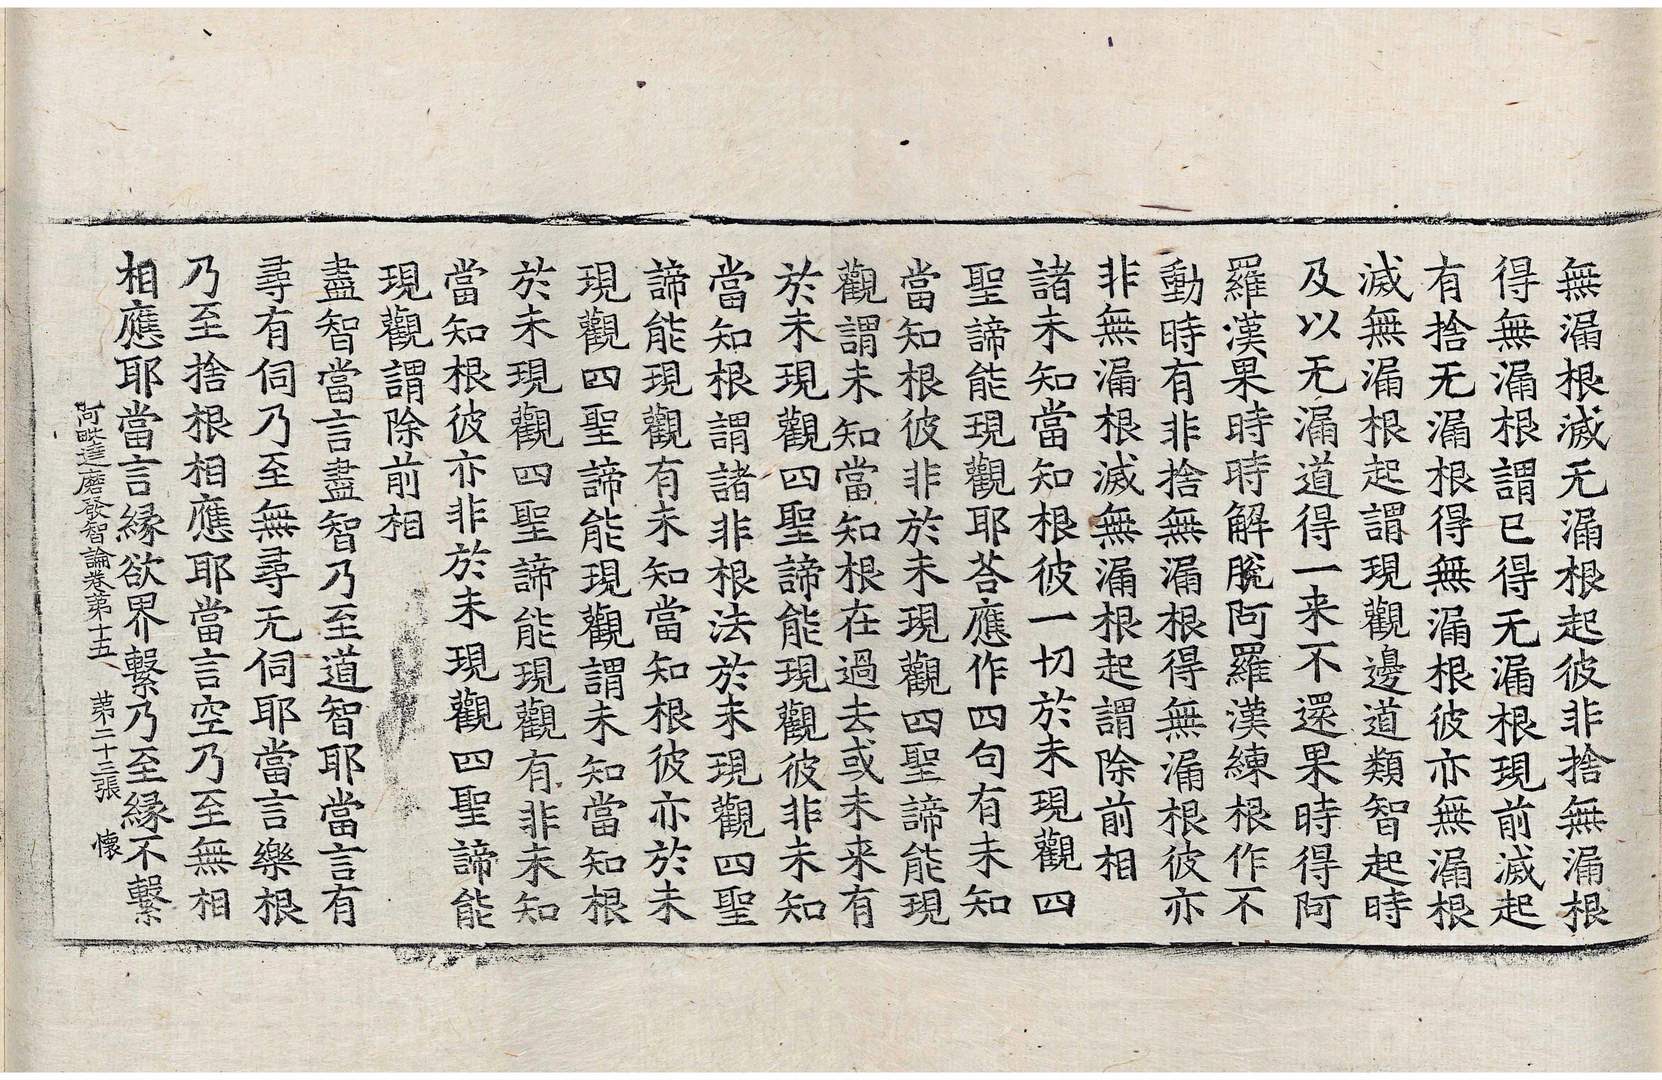 無漏根滅无漏根起彼非捨無漏根
得無漏根謂已得无漏根現前滅起
有捨无漏根得無漏根彼亦無漏根
滅無漏根起謂現觀邊道類智起時
及以无漏道得一来不還果時得阿
羅漢果時時解脫阿羅漢練根作不
動時有非捨無漏根得無漏根彼亦
非無漏根滅無漏根起謂除前相
諸未知當知根彼一切於未現觀四
聖諦能現觀耶荅應作四句有未知
當知根彼非於未現觀四聖諦能現
觀謂未知當知根在過去或未来有
於未現觀四聖諦能現觀彼非未知
當知根謂諸非根法於未現觀四聖
諦能現觀有未知當知根彼亦於未
現觀四聖諦能現觀謂未知當知根
於未現觀四聖諦能現觀有非未知
當知根彼亦非於未現觀四聖諦能
現觀謂除前相
盡智當言盡智乃至道智耶當言有
尋有伺乃至無尋无伺耶當言樂根
乃至捨根相應耶當言空乃至無相
相應耶當言緣欲界繫乃至緣不繫
阿毗達磨發智論卷第十五 第二十三張 懷